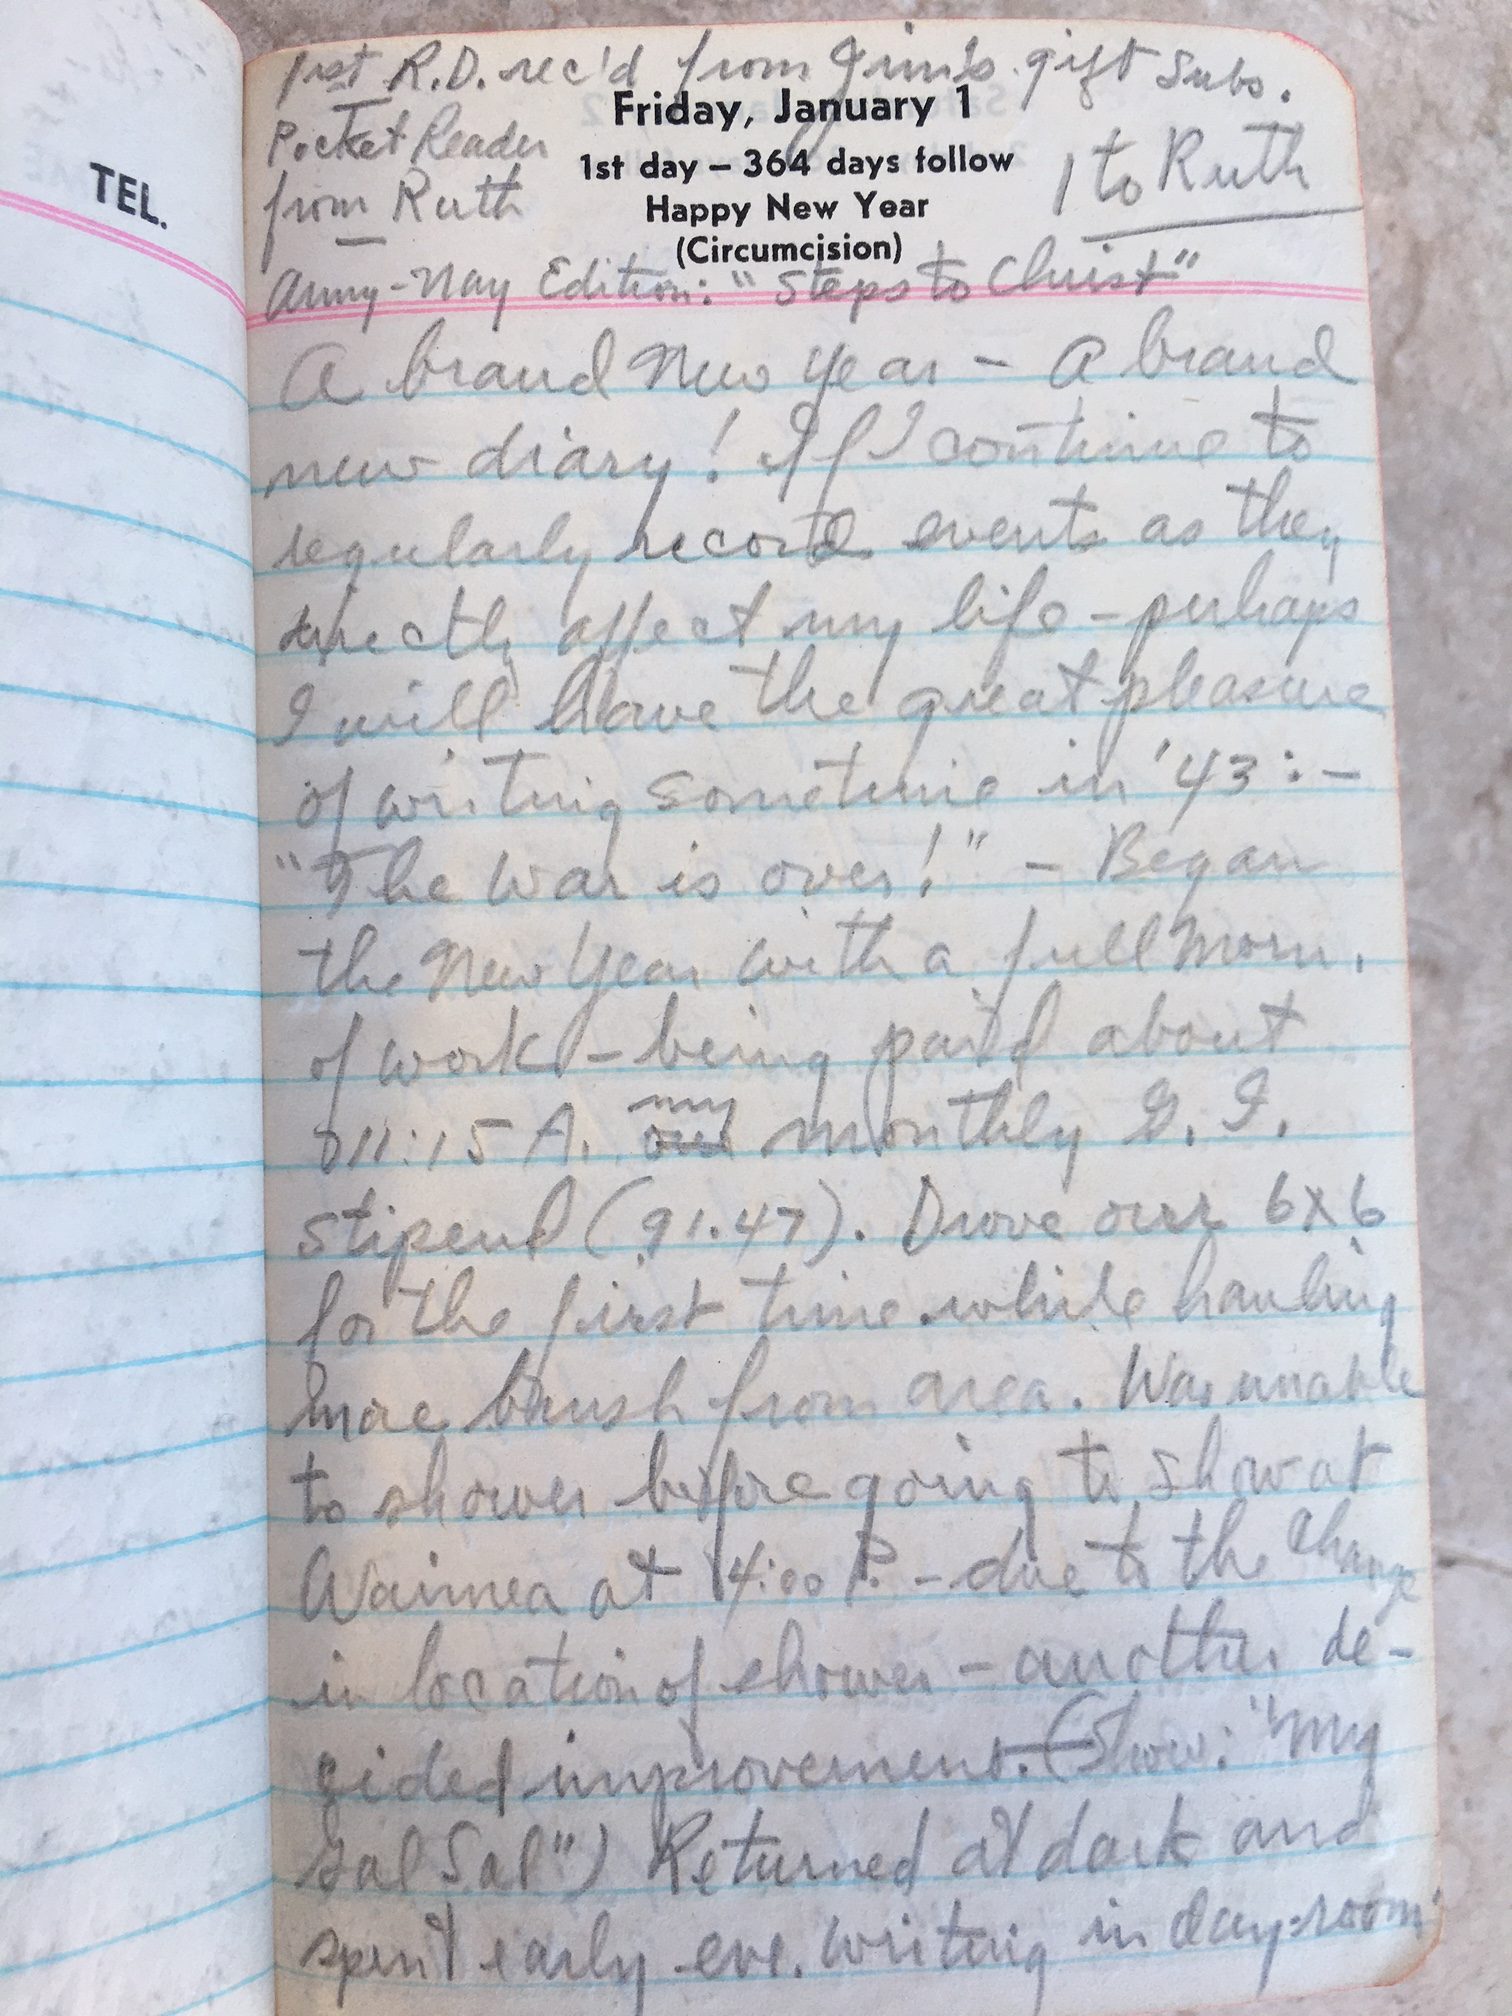 TEL.
1st R.D. rec'd from Jim's gift Subs.
Friday, January 1
Pocket Reader
1st day – 364 days follow
1 to Ruth
from Ruth
Happy New Year
(Circumcision)
Army-Navy Edition: "Steps to Christ"
A brand New Year – A brand
new diary! If I continue to
regularly record events as they
directly affect my life – perhaps
I will have the great pleasure
of writing sometime in '43:–
"The War is over!" – Began
the New Year with a full morn.
of work – being paid about
11:15 A. my our monthly G. I.
stipend (91.47). Drove our 6x6
for the first time while hauling
more brush from area. Was unable
to shower before going to show at
Waimea at 4:00 P. – due to the change
in location of shower – another de-
cided improvement. (Show: "My
Gal Sal") Returned at dark and
spent early eve. writing in day-room